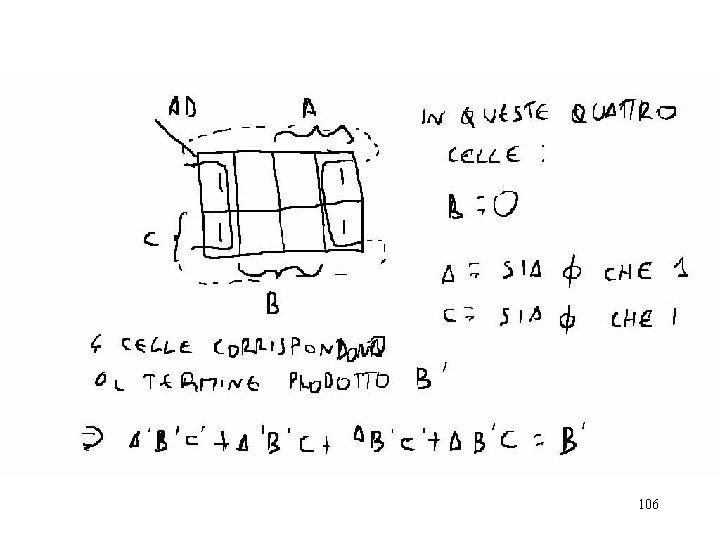 AD A
IN QUESTE QUATTRO
CELLE :
1 1
B = 0
C 1 1
A = SIA ϕ CHE 1
B
C = SIA ϕ CHE 1
4 CELLE CORRISPONDONO
AL TERMINE PRODOTTO B'
⇒ A'B'C' + A'B'C + AB'C' + AB'C = B'
106